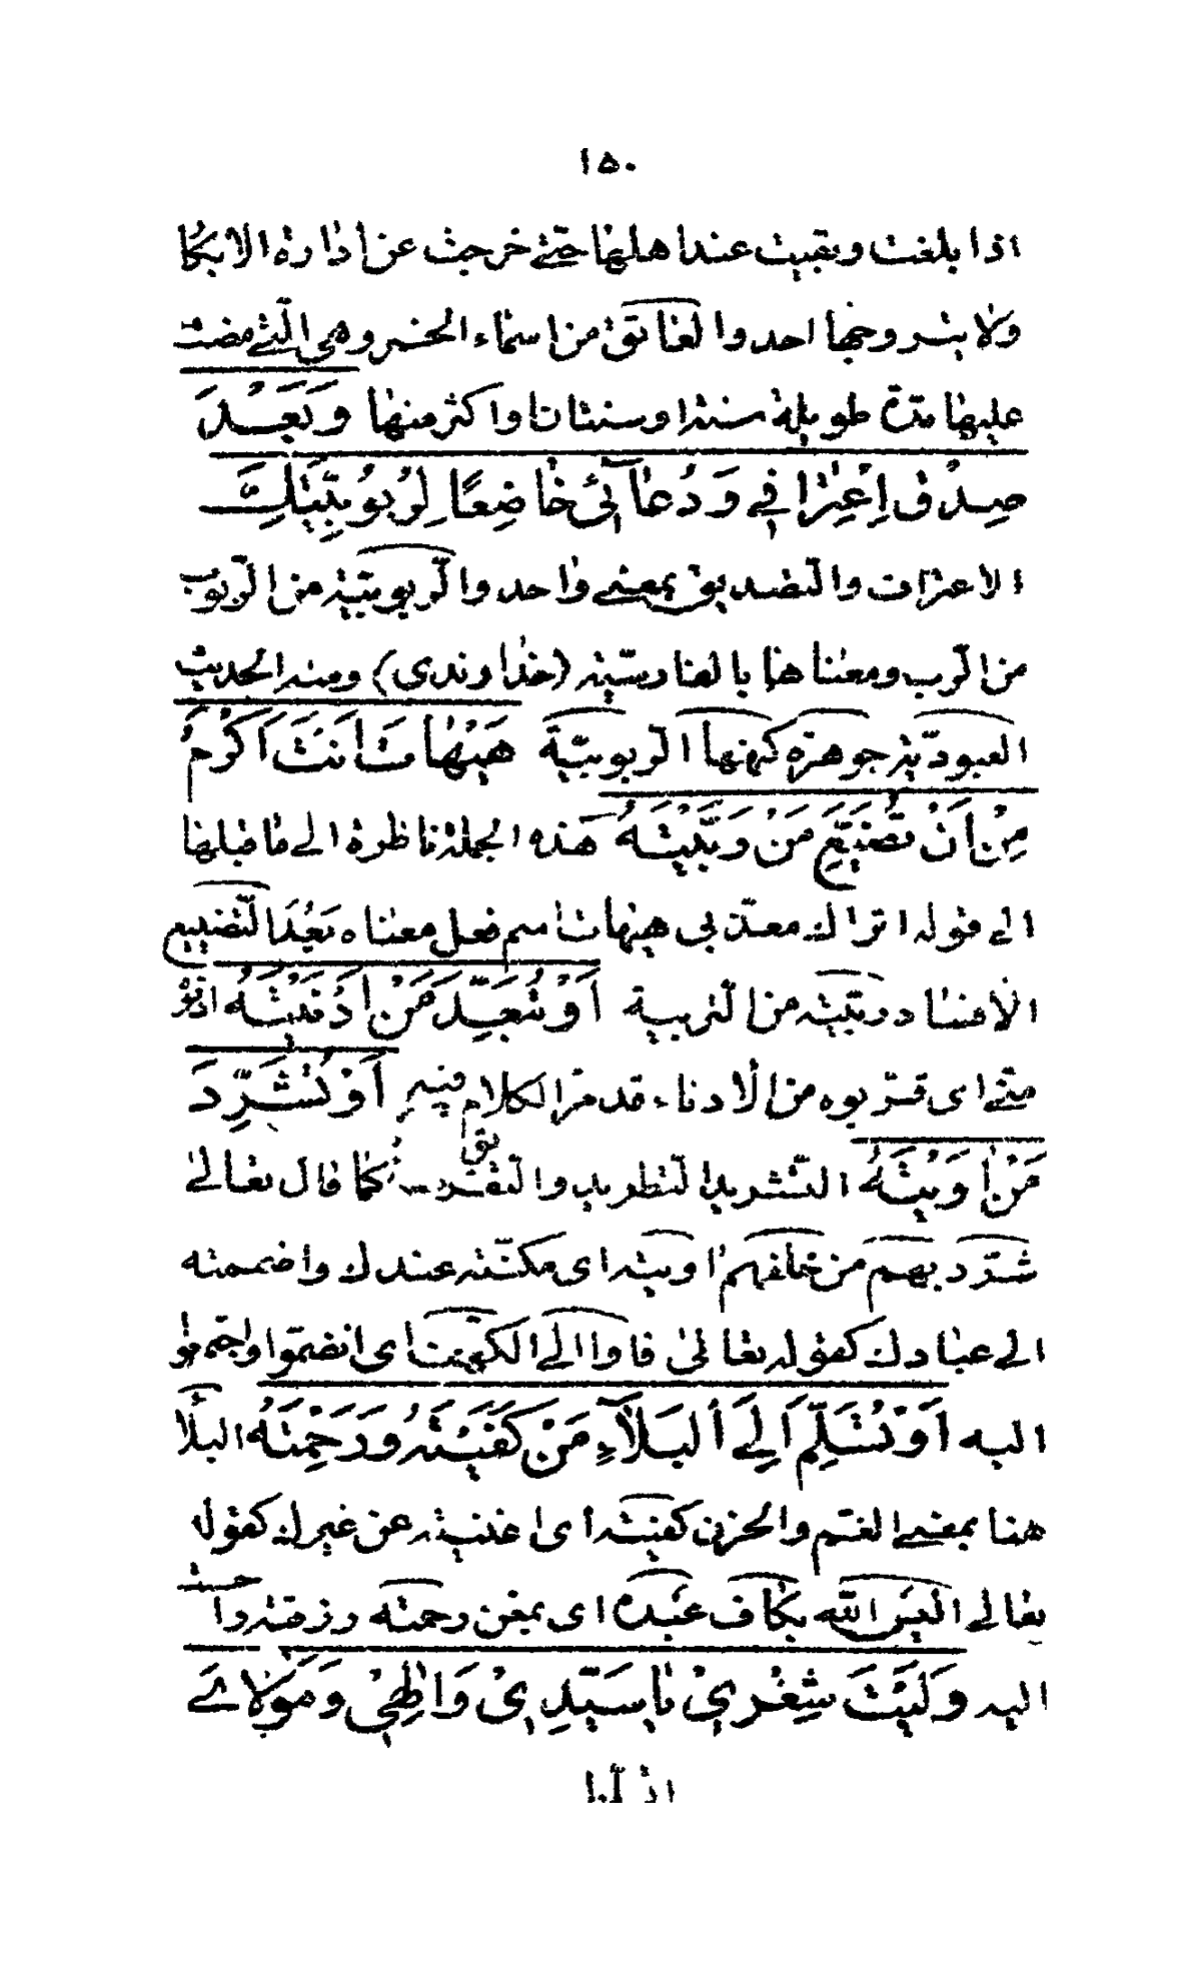 ١٥٠
اذا بلغت وبقيت عند اهلها حتى خرجت عن اداره الابكا
ولا يتزوجها احد والعاتق من اسماء الخمر وهى التى مضت
عليها مدة طويلة سنة او سنتان او اكثر منها وَبَعْدَ
صِدْقِ اِعْتِرٰافي وَدُعٰآئى خٰاضِعًا لِرُبُوبِيَّتِكَ
الاعتراف والتصديق بمعنى واحد والربوبيّة من الربوب
من الرّب ومعناها بالفارسيّة (خداوندى) ومنه الحديث
العبوديّة جوهرة كنهها الرّبوبيّة هَيْهٰاتَ اَنتَ اَكْرَمُ
مِنْ اَنْ تُضَيِّعَ مَنْ رَبَّيْتَهُ هذه الجملة ناظرة الى ما قبلها
الى قوله اتراك معذّبى هيهات اسم فعل معناه بَعُدَ التّضييع
الأفساد ربّيته من التّربية أَوْ تُبَعِّدَ مَنْ اَدْنَيْتَهُ ادنو
منّى اى قرّبوه من الأدناء قد مرّ الكلام فيه أَوْ تُشَرِّدَ
مَنْ اٰوَيْتَهُ التّشريد التطريد والتفريق كما قال تعالى
شرّد بهم من خلفهم اويته اى مكنّته عندك واضممته
الى عبادك كقوله تعالى فاوا الى الكهف اى انضمّوا واجتمعوا
اليه اَوْ تُسَلِّمَ اِلَى الْبَلٰآءِ مَنْ كَفَيْتَهُ وَرَحِمْتَهُ البلأ
هنا بمعنى الغمّ والحزن كفيته اى اغنيته عن غيرك كقوله
تعالى اليس الله بكاف عبده اى بمغن رحمته رزقته واحسنت
اليه وَلَيْتَ شِعْرىْ يٰا سَيِّدِىْ وَاِلٰهِىْ وَمَوْلاىَ